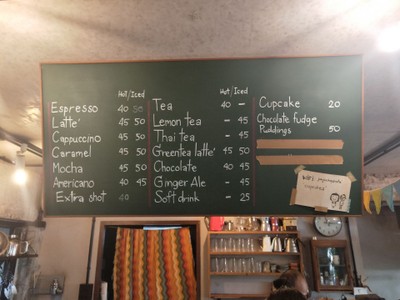 Hot/Iced
Espresso 40 50
Latte' 45 50
Cappuccino 45 50
Caramel 45 50
Mocha 45 50
Americano 40 45
Extra shot 40
Hot/Iced
Tea 40 -
Lemon tea - 45
Thai tea - 45
Greentea latte' 45 50
Chocolate 40 45
Ginger Ale - 45
Soft drink - 25
Cupcake 20
Chocolate fudge
Puddings 50
WiFi: